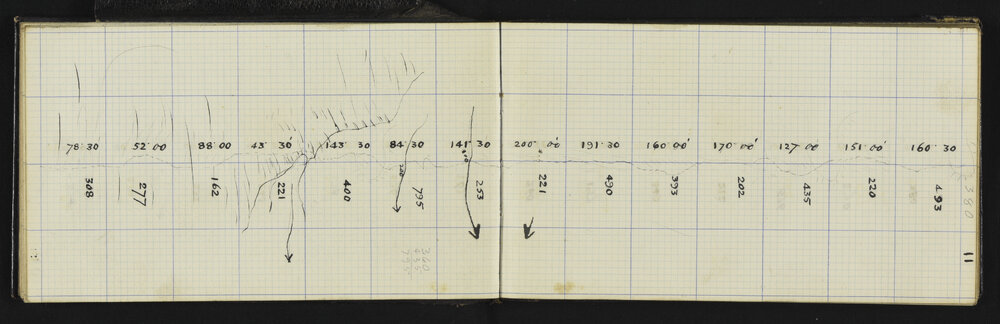 78° 30 52° 00 88° 00 43° 30' 143° 30 84° 30 141° 30 200° 00' 191° 30 160° 00' 170° 00' 127° 00 151° 00' 160° 30
308 277 162 221 400 795 253 221 490 393 202 435 220 493
360
435
795
380
11